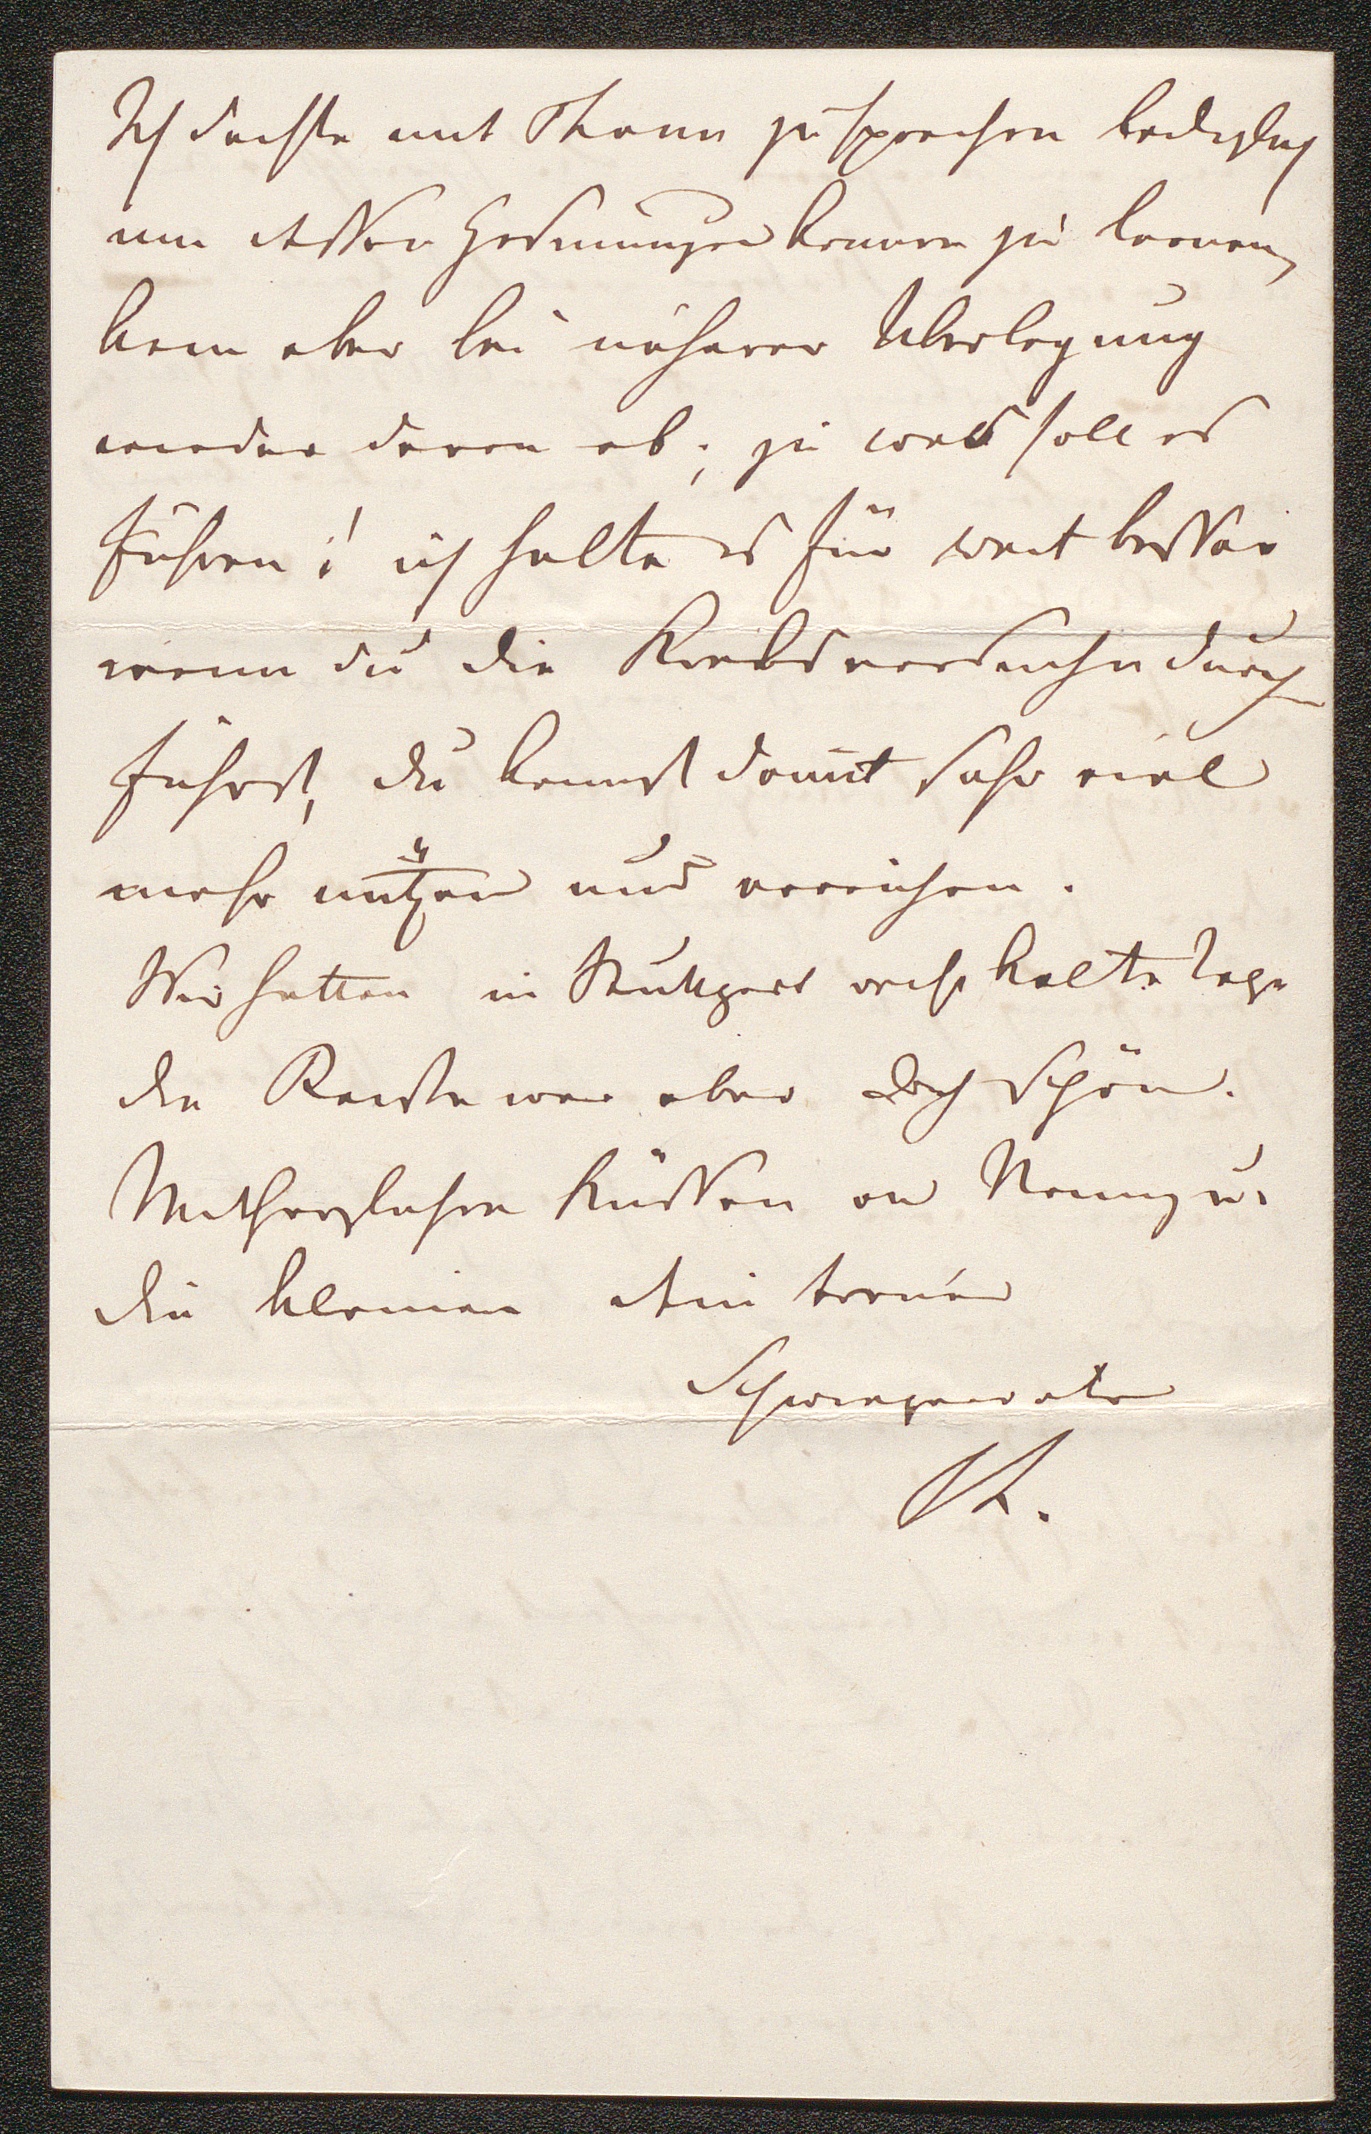 Ich dachte mit Thann zu sprechen lediglich
um dessen Gesinnungen kennen zu lernen,
kam aber bei näherer Überlegung
wieder davon ab; zu was soll es
führen! ich halte es für weit besser
wenn du die durch
führst, du kannst damit sehr viel
mehr nützen und erreichen.
Wir hatten in Stuttgart recht kalte Tage
die Reise war aber doch schön.
Mit herzlichen Küssen an u.
die kleinen dein treuer
Schwiegervater